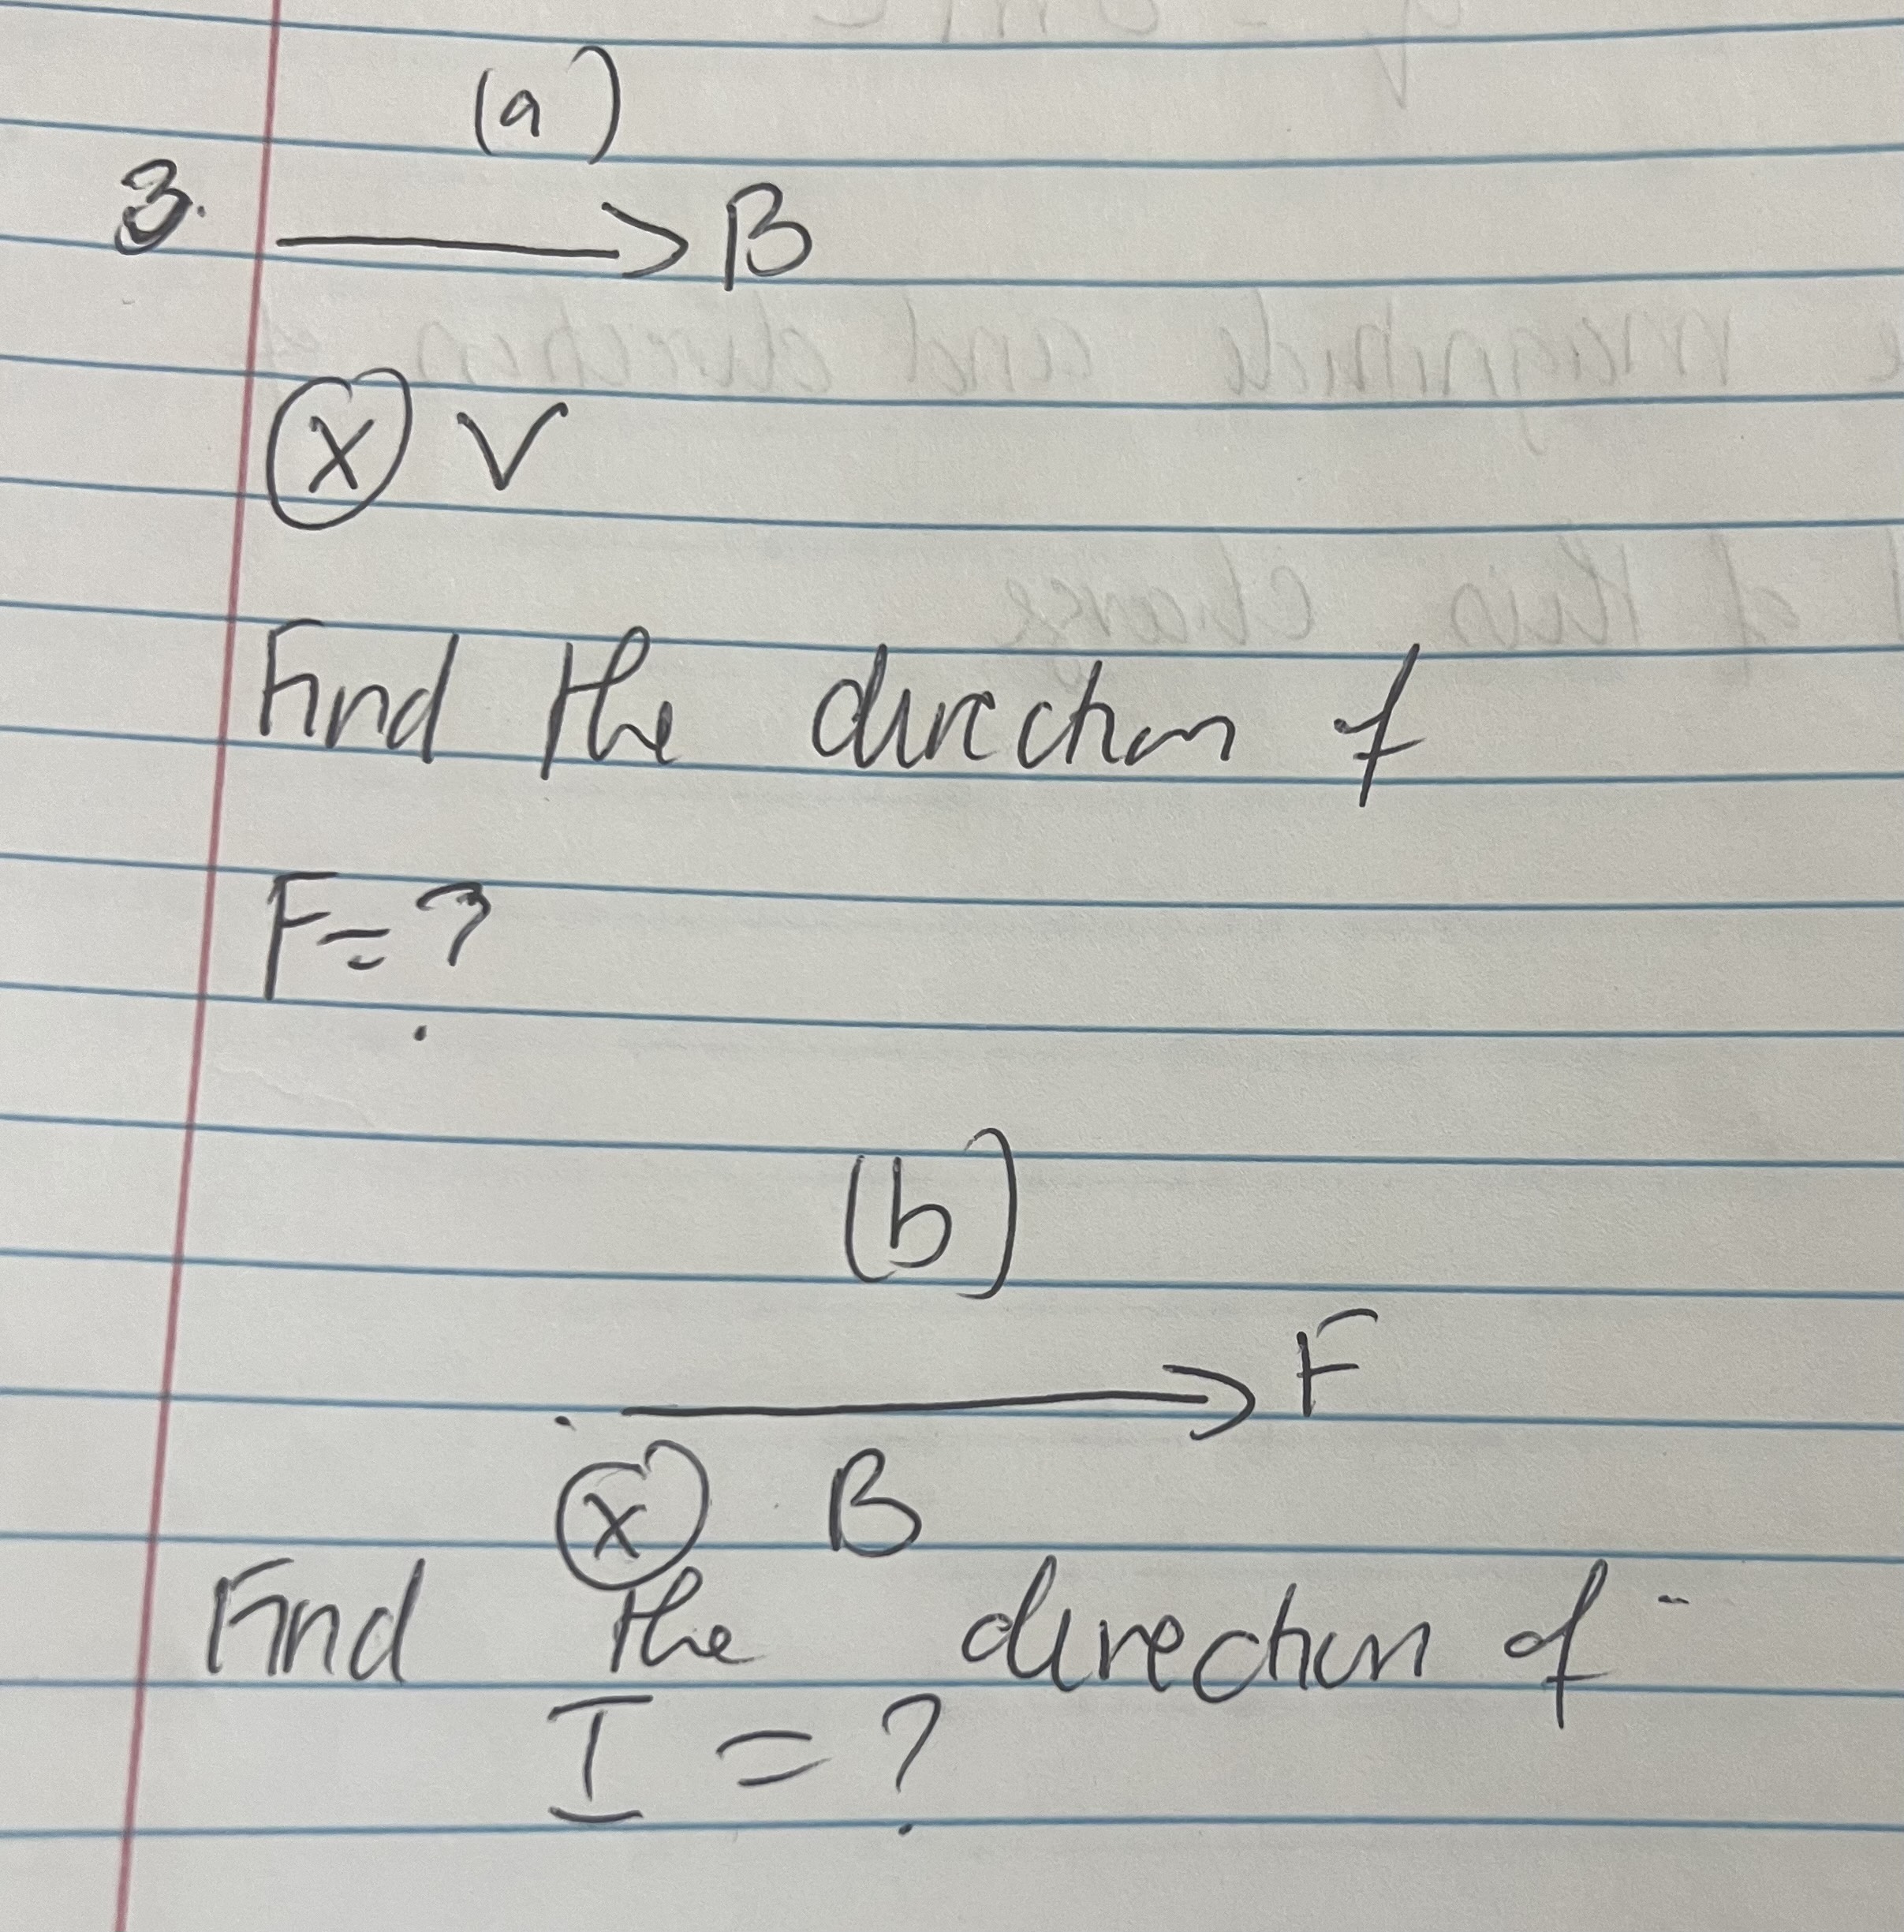 (a)
3. → B
ⓧ V
Find the direction of
F = ?
(b)
→ F
ⓧ B
Find the direction of
I = ?